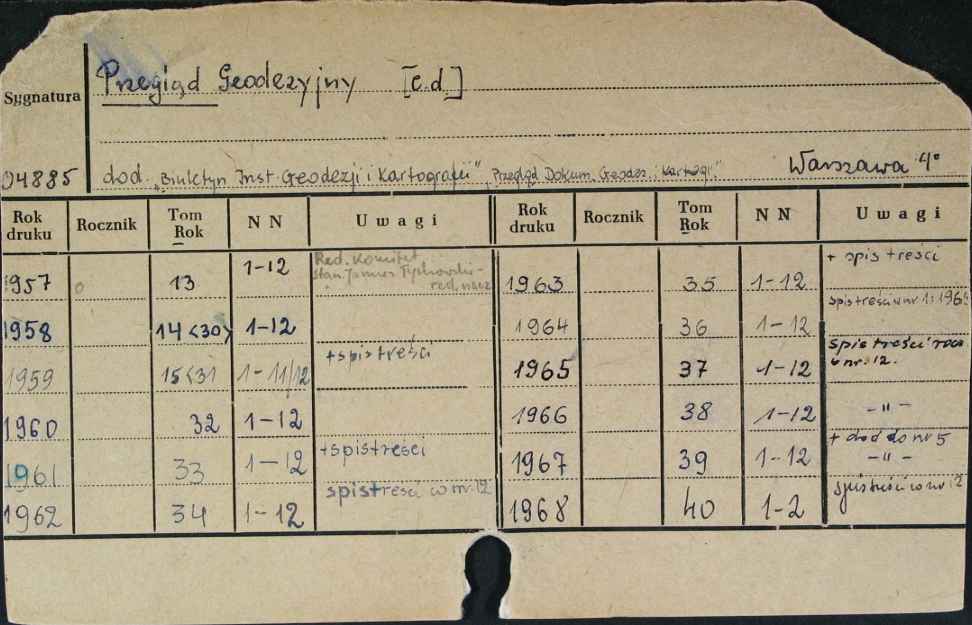 Przegląd Geodezyjny [c.d.]
Sygnatura
04885 dod. „Biuletyn Inst. Geodezji i Kartografii" „Przegląd Dokum. Geodez. i Kartogr." Warszawa 4°
Rok druku Rocznik Tom Rok NN Uwagi Rok druku Rocznik Tom Rok NN Uwagi
1957 13 1-12 Red. Komitet
red. nacz. 1963 35 1-12 + spis treści
1958 14<30> 1-12 1964 36 1-12 spis treści w nr 1: 1965
1959 15<31 1-11/12 + spis treści 1965 37 1-12 spis treści
w nr. 12.
1960 32 1-12 1966 38 1-12 -"-
1961 33 1-12 + spis treści 1967 39 1-12 + dod do nr 5
-"-
1962 34 1-12 spis treści w nr. 12 1968 40 1-2 spis treści w nr 12